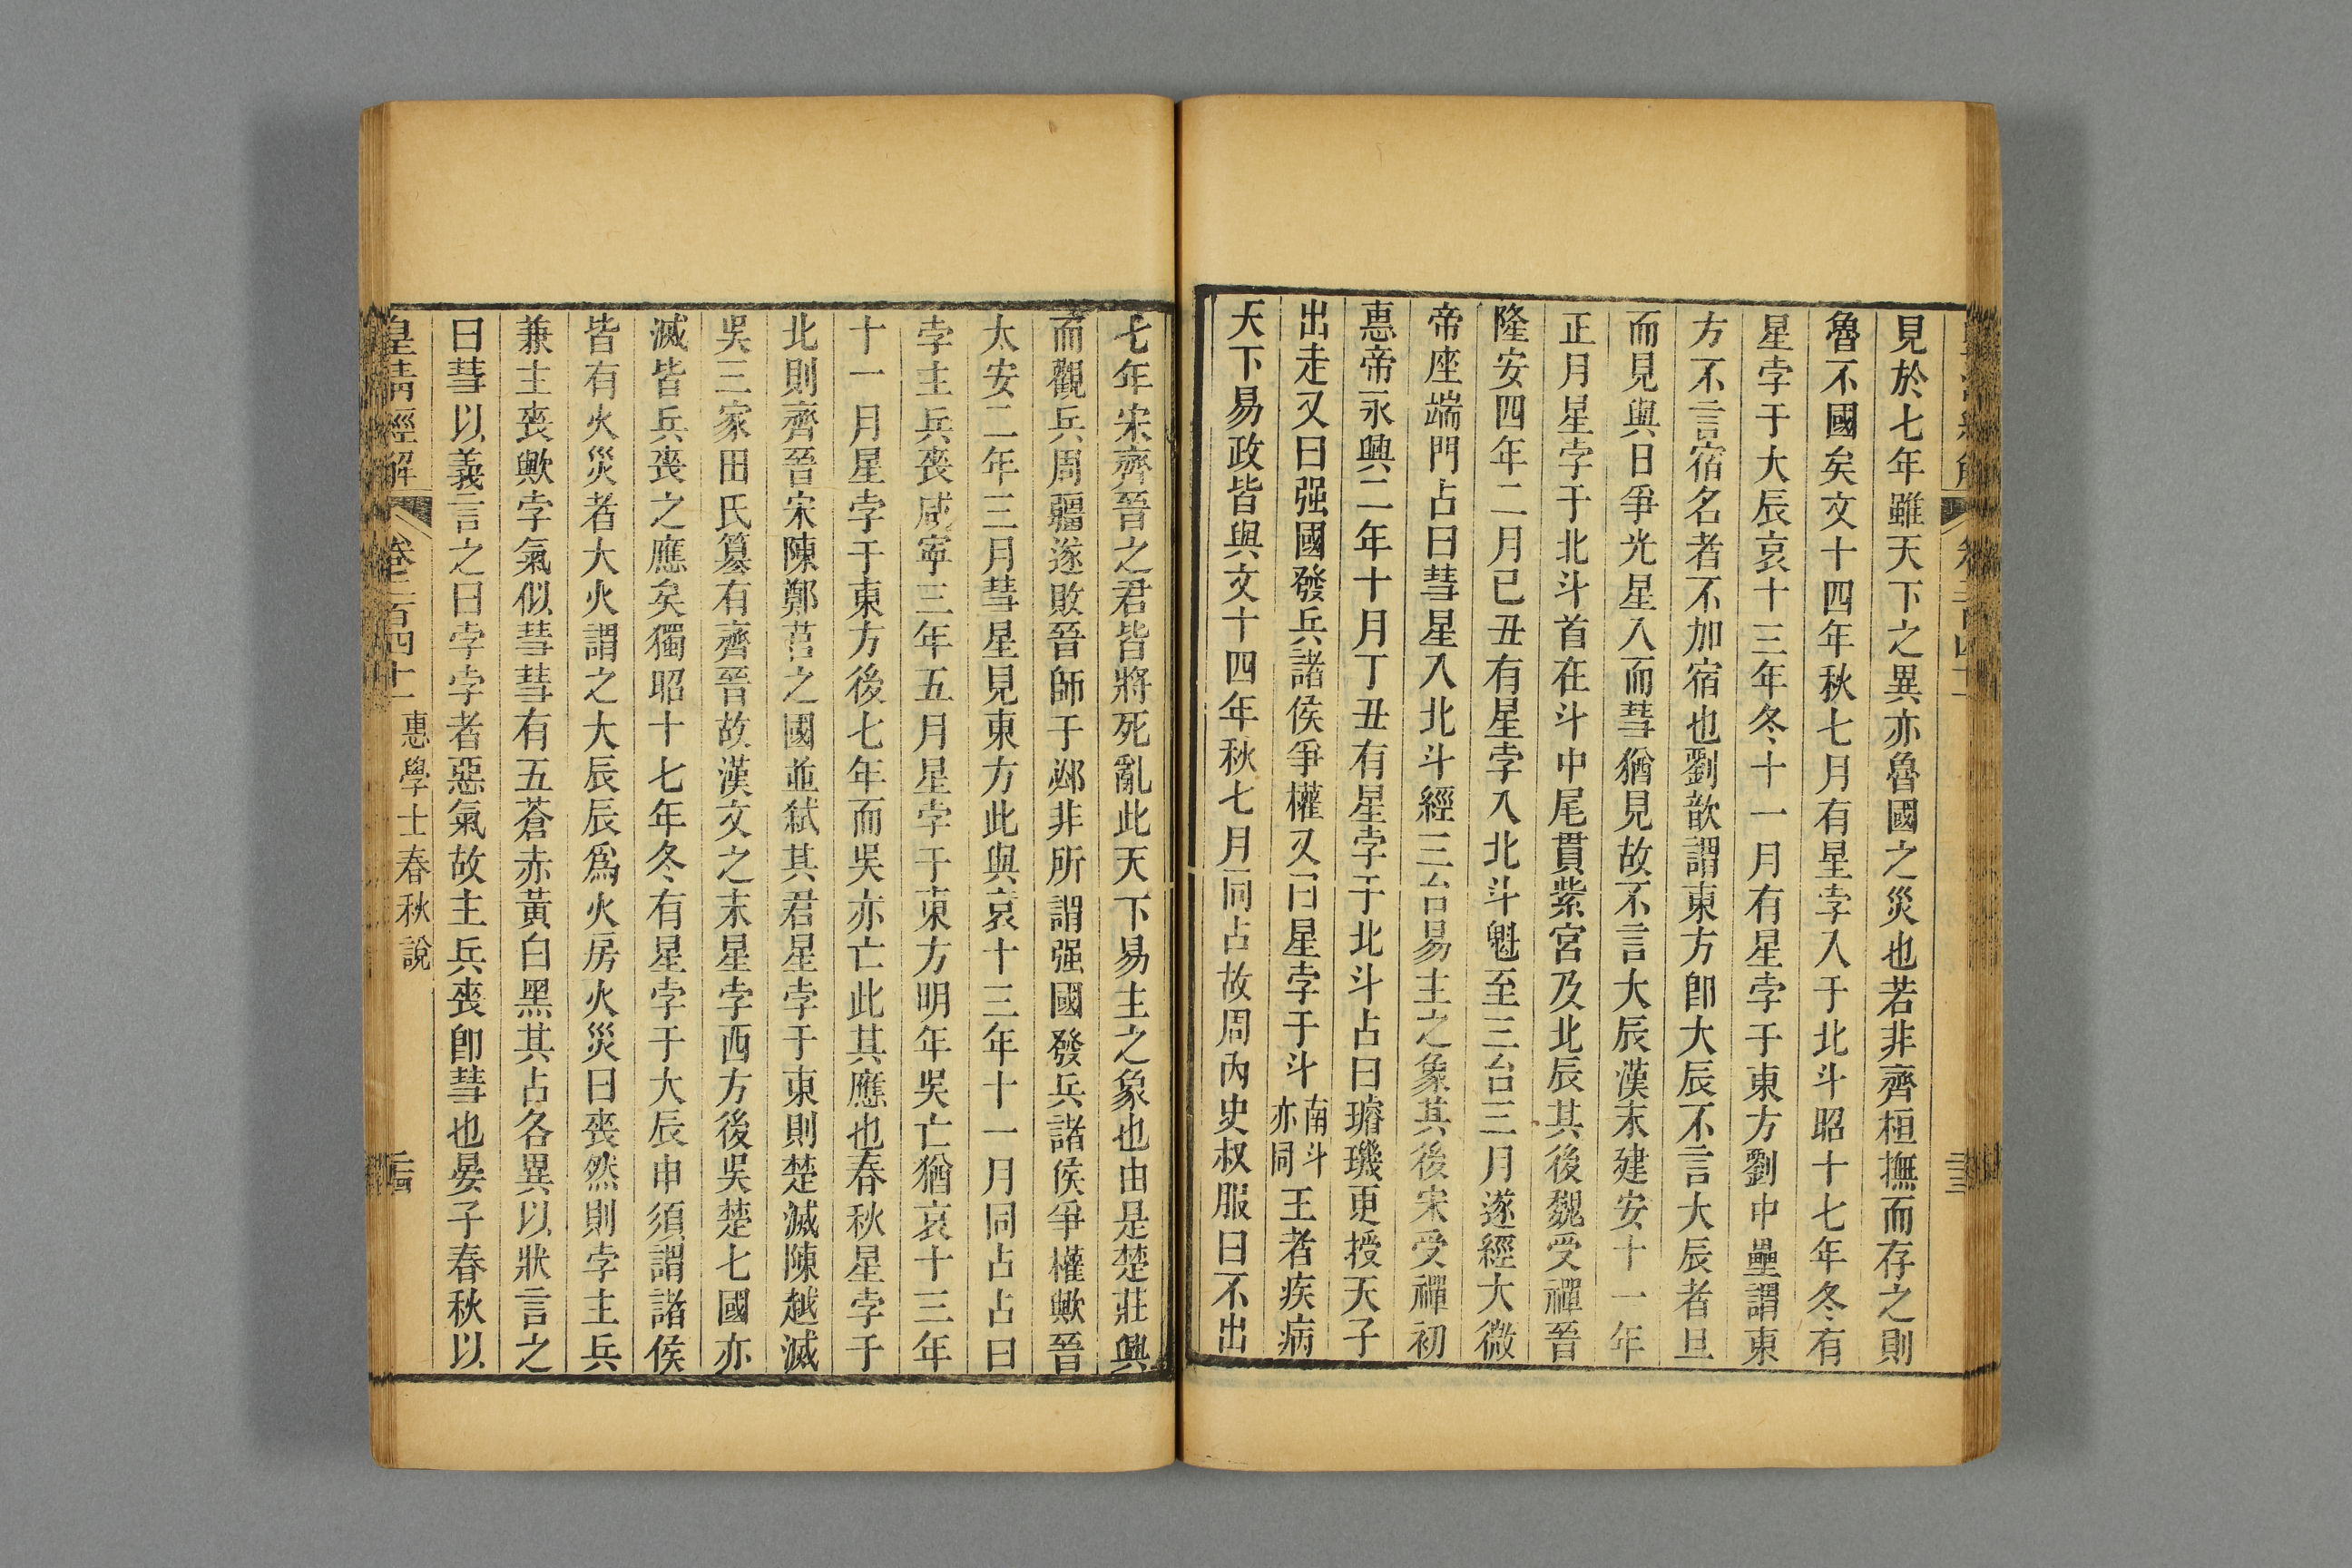 見於七年雖天下之異亦魯國之災也若非齊桓撫而存之則
魯不國矣文十四年秋七月有星孛入于北斗昭十七年冬有
星孛于大辰哀十三年冬十一月有星孛于東方劉中壘謂東
方不言宿名者不加宿也劉歆謂東方卽大辰不言大辰者旦
而見與日爭光星入而彗猶見故不言大辰漢末建安十一年
正月星孛于北斗首在斗中尾貫紫宮及北辰其後魏受禪晉
隆安四年二月已丑有星孛入北斗魁至三台三月遂經大微
帝座端門占曰彗星入北斗經三台易主之象其後宋受禪初
惠帝永興二年十月丁丑有星孛于北斗占曰璿璣更授天子
出走又曰强國發兵諸侯爭權又曰星孛于斗南斗亦同王者疾病
天下易政皆與文十四年秋七月同占故周內史叔服曰不出
七年宋齊晉之君皆將死亂此天下易主之象也由是楚莊興
而觀兵周疆遂敗晉師于邲非所謂强國發兵諸侯爭權歟晉
太安二年三月彗星見東方此與哀十三年十一月同占占曰
孛主兵喪咸寧三年五月星孛于東方明年吳亡猶哀十三年
十一月星孛于東方後七年而吳亦亡此其應也春秋星孛于
北則齊晉宋陳鄭莒之國並弒其君星孛于東則楚滅陳越滅
吳三家田氏簒有齊晉故漢文之末星孛西方後吳楚七國亦
滅皆兵喪之應矣獨昭十七年冬有星孛于大辰申須謂諸侯
皆有火災者大火謂之大辰辰爲火房火災曰喪然則孛主兵
兼主喪歟孛氣似彗彗有五蒼赤黃白黑其占各異以狀言之
曰彗以義言之曰孛孛者惡氣故主兵喪卽彗也晏子春秋以
皇清經解 卷二百四十一 惠學士春秋說